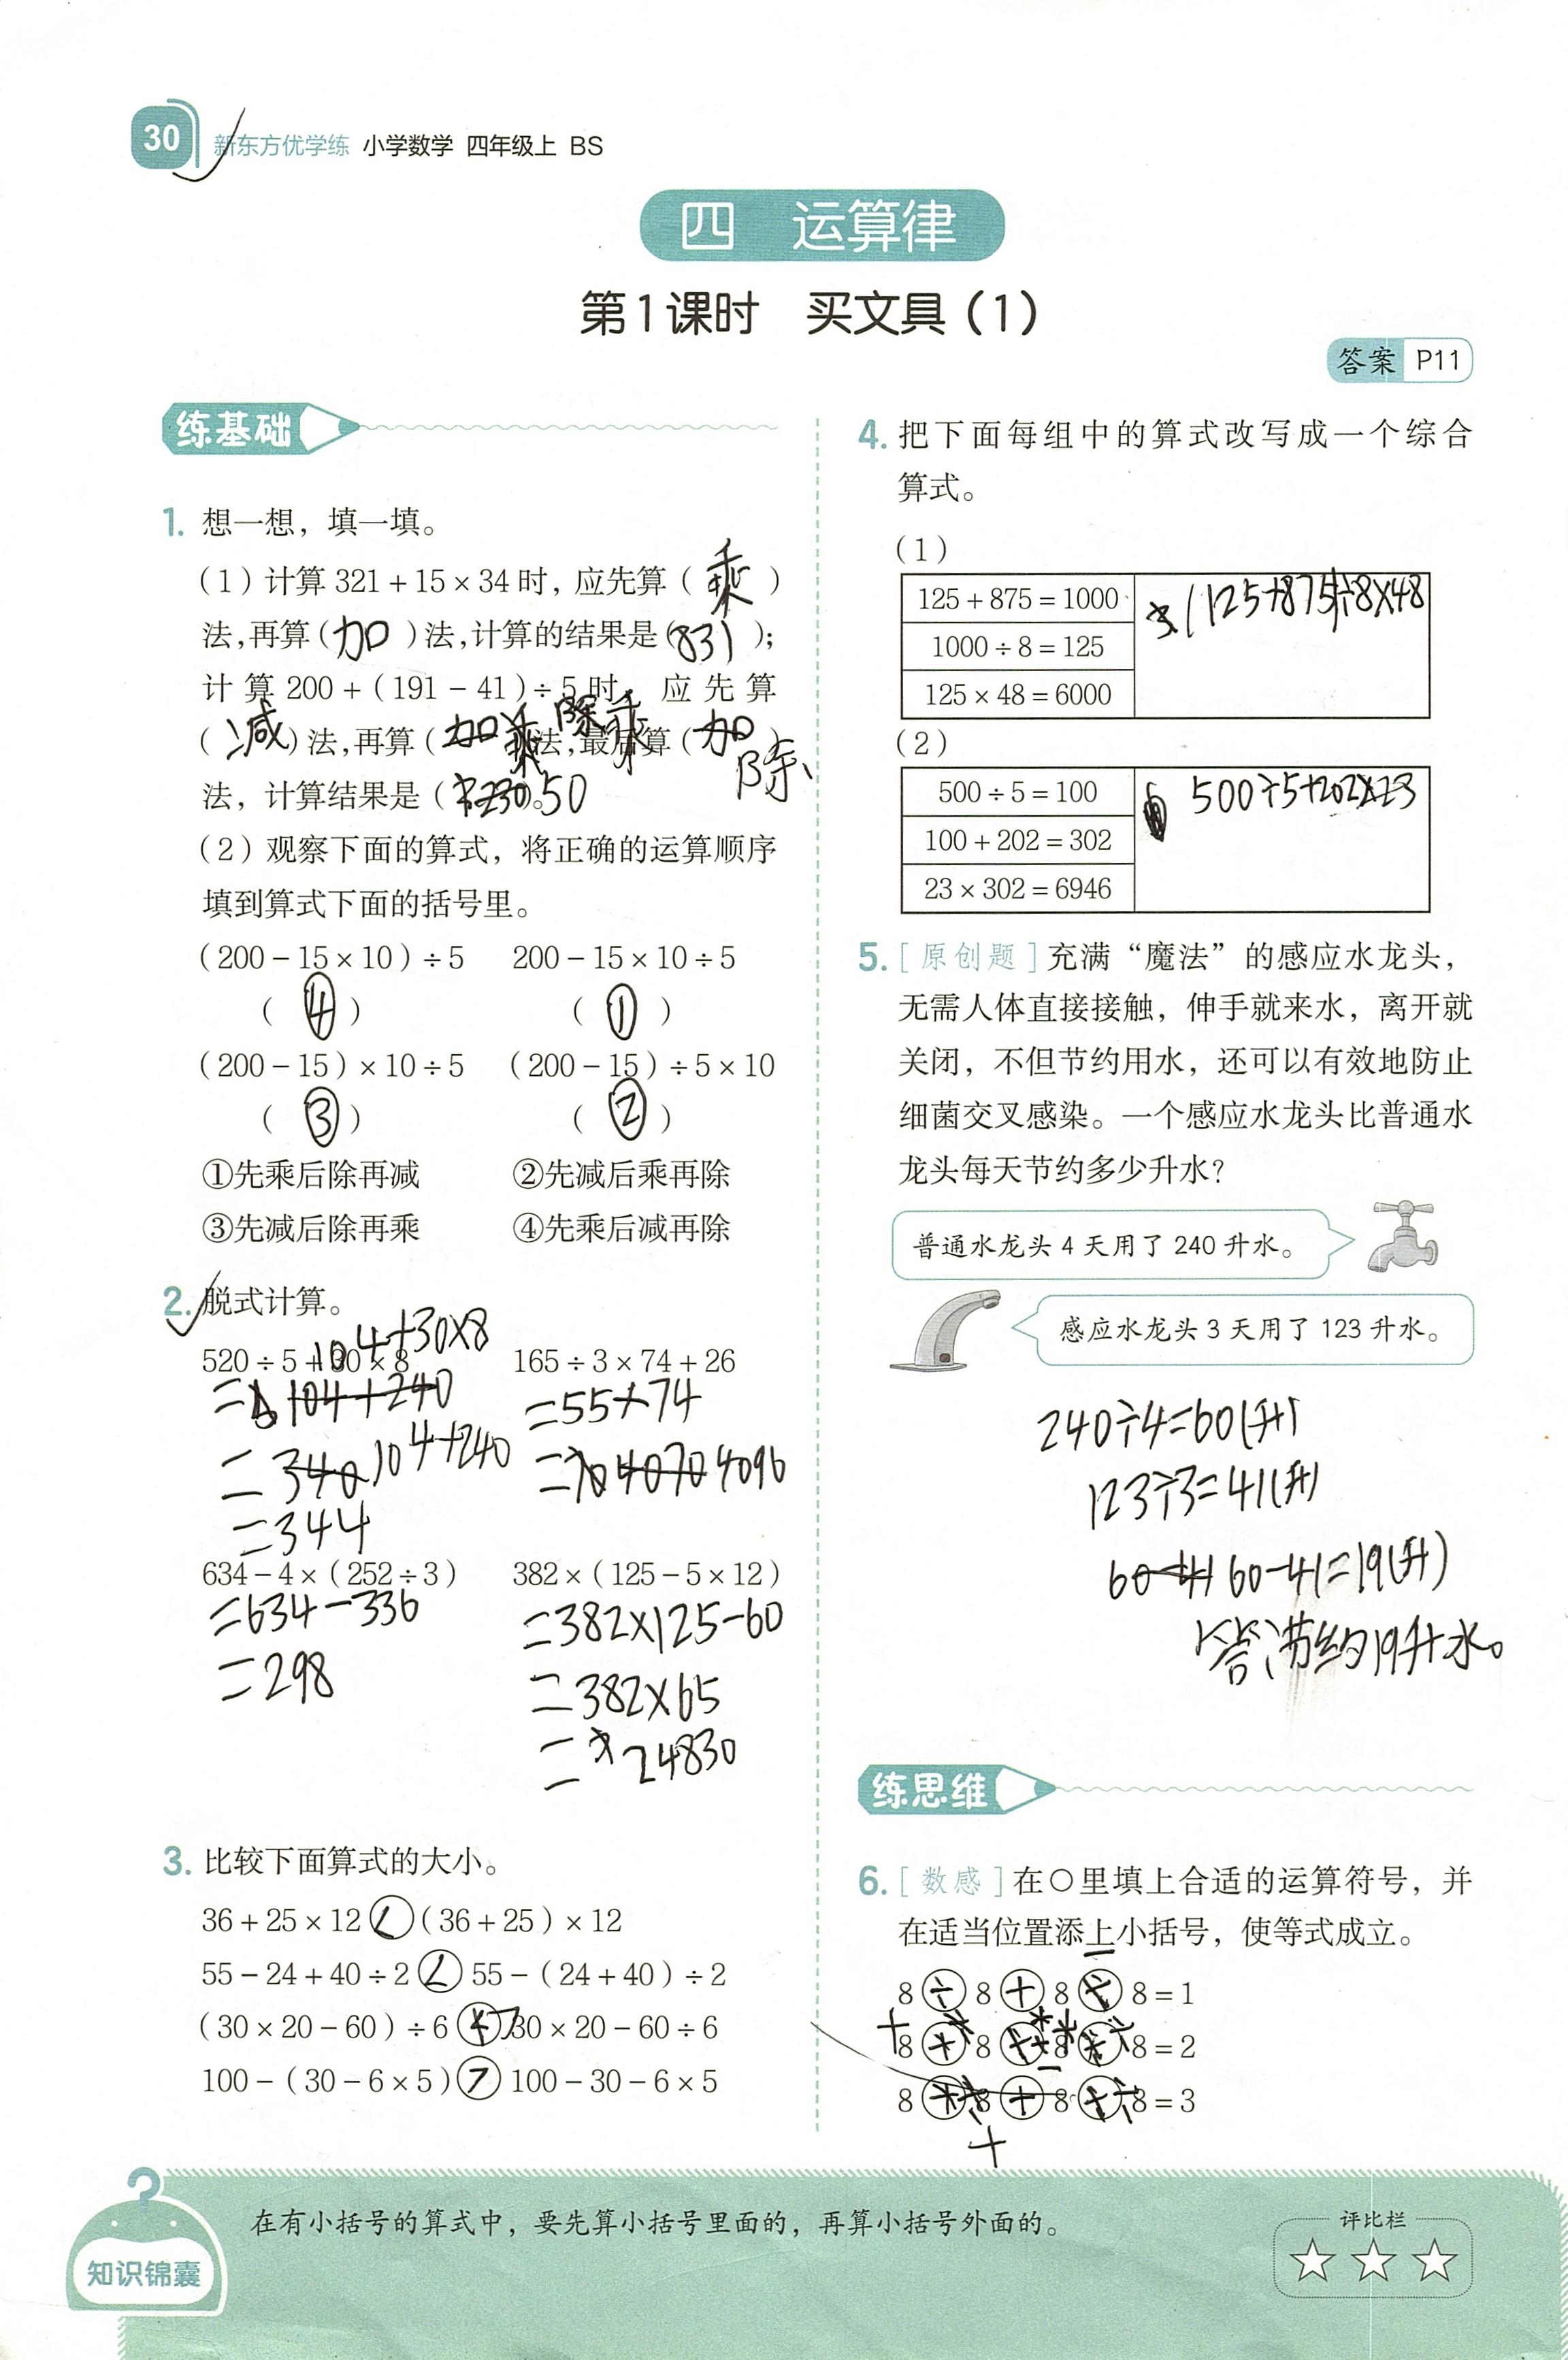 30 新东方优学练 小学数学 四年级上 BS
四 运算律
第1课时 买文具（1）
答案 P11
练基础
1. 想一想，填一填。
（1）计算 321 + 15 × 34 时，应先算（乘）
法，再算（加）法，计算的结果是（831）；
计算 200 +（191 - 41）÷ 5 时，应先算
（减）法，再算（除）法，最后算（加
除）
法，计算结果是（50
（2）观察下面的算式，将正确的运算顺序
填到算式下面的括号里。
（200 - 15 × 10）÷ 5 200 - 15 × 10 ÷ 5
（④） （①）
（200 - 15）× 10 ÷ 5 （200 - 15）÷ 5 × 10
（③） （②）
①先乘后除再减 ②先减后乘再除
③先减后除再乘 ④先乘后减再除
2. 脱式计算。
104+30×8
520 ÷ 5 + 30 × 8 165 ÷ 3 × 74 + 26
=104+240 =55×74
=340 104+240 =4096
=344
634 - 4 ×（252 ÷ 3） 382 ×（125 - 5 × 12）
=634-336 =382×125-60
=298 =382×65
=24830
3. 比较下面算式的大小。
36 + 25 × 12 < （36 + 25）× 12
55 - 24 + 40 ÷ 2 < 55 -（24 + 40）÷ 2
（30 × 20 - 60）÷ 6 30 × 20 - 60 ÷ 6
100 -（30 - 6 × 5） > 100 - 30 - 6 × 5
4. 把下面每组中的算式改写成一个综合
算式。
（1）
125 + 875 = 1000 (125+875)÷8×48
1000 ÷ 8 = 125
125 × 48 = 6000
（2）
500 ÷ 5 = 100 500÷5+202×23
100 + 202 = 302
23 × 302 = 6946
5. [原创题]充满“魔法”的感应水龙头，
无需人体直接接触，伸手就来水，离开就
关闭，不但节约用水，还可以有效地防止
细菌交叉感染。一个感应水龙头比普通水
龙头每天节约多少升水？
普通水龙头 4 天用了 240 升水。
感应水龙头 3 天用了 123 升水。
240÷4=60(升)
123÷3=41(升)
60-41 60-41=19(升)
答:节约19升水。
练思维
6. [数感]在○里填上合适的运算符号，并
在适当位置添上小括号，使等式成立。
8 ÷ 8 + 8 8 = 1
8 8 8 8 = 2
8 8 + 8 8 = 3
在有小括号的算式中，要先算小括号里面的，再算小括号外面的。
知识锦囊
评比栏